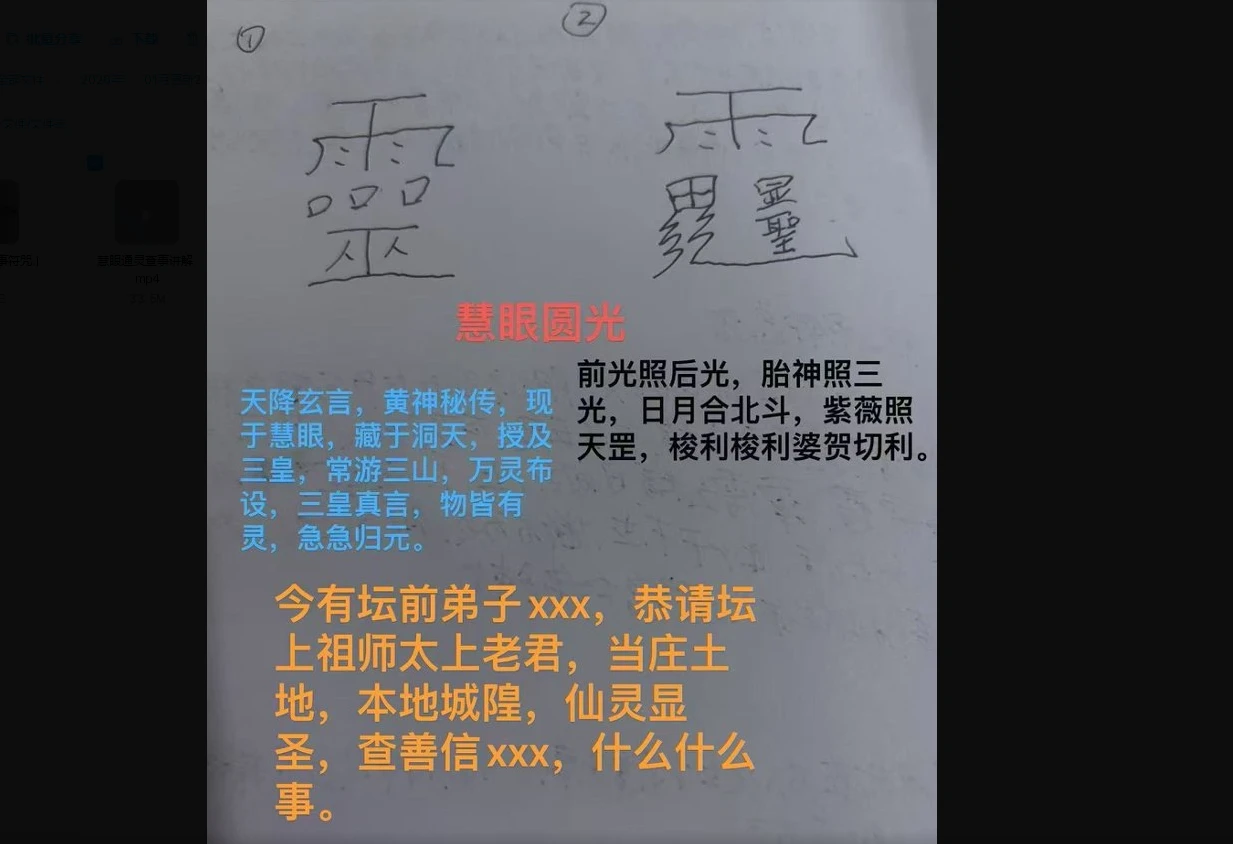 ①
②
靈
慧眼圆光
前光照后光，胎神照三
光，日月合北斗，紫薇照
天罡，梭利梭利婆贺切利。
天降玄言，黄神秘传，现
于慧眼，藏于洞天，授及
三皇，常游三山，万灵布
设，三皇真言，物皆有
灵，急急归元。
今有坛前弟子xxx，恭请坛
上祖师太上老君，当庄土
地，本地城隍，仙灵显
圣，查善信xxx，什么什么
事。
mp4